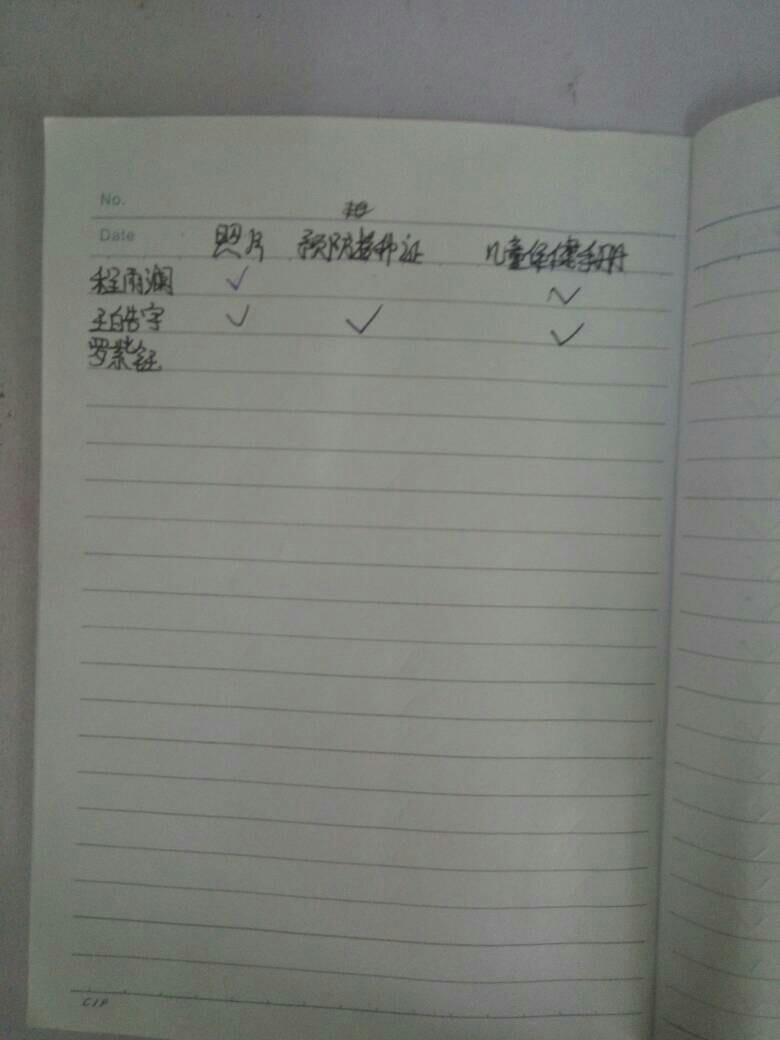 No.
Date 照片 预防接种证 儿童保健手册
程雨澜 ✓ ✓
王皓宇 ✓ ✓ ✓
罗紫钰